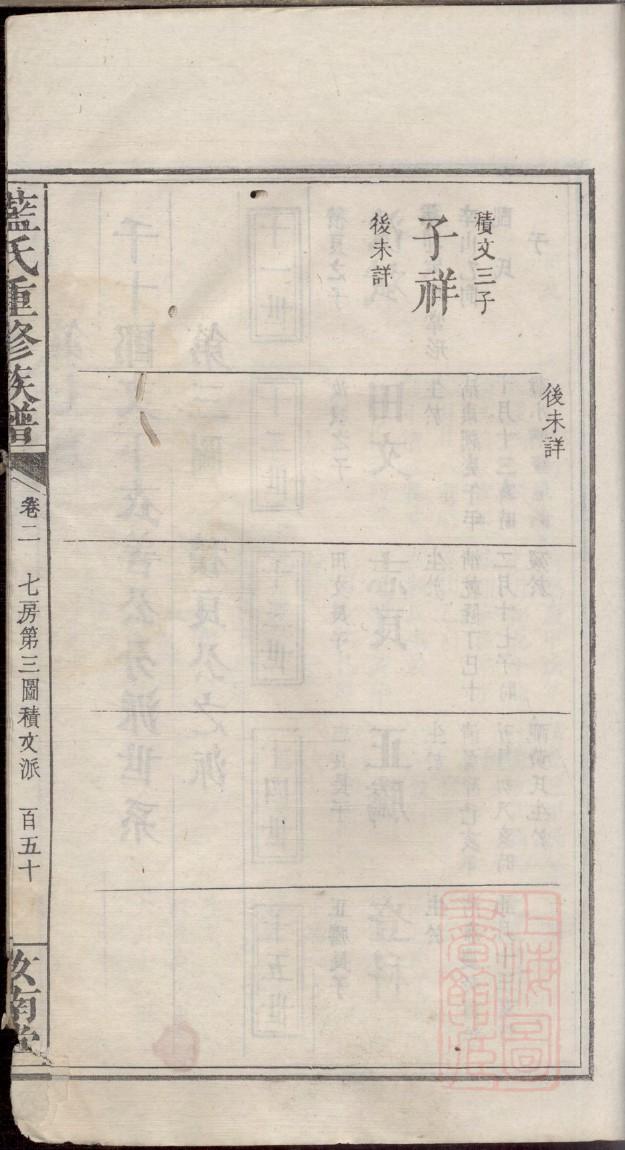 後未詳
積文三子
子祥
後未詳
藍氏重修族譜
卷二 七房第三圖積文派 百五十
汝南堂
上海圖
書館藏